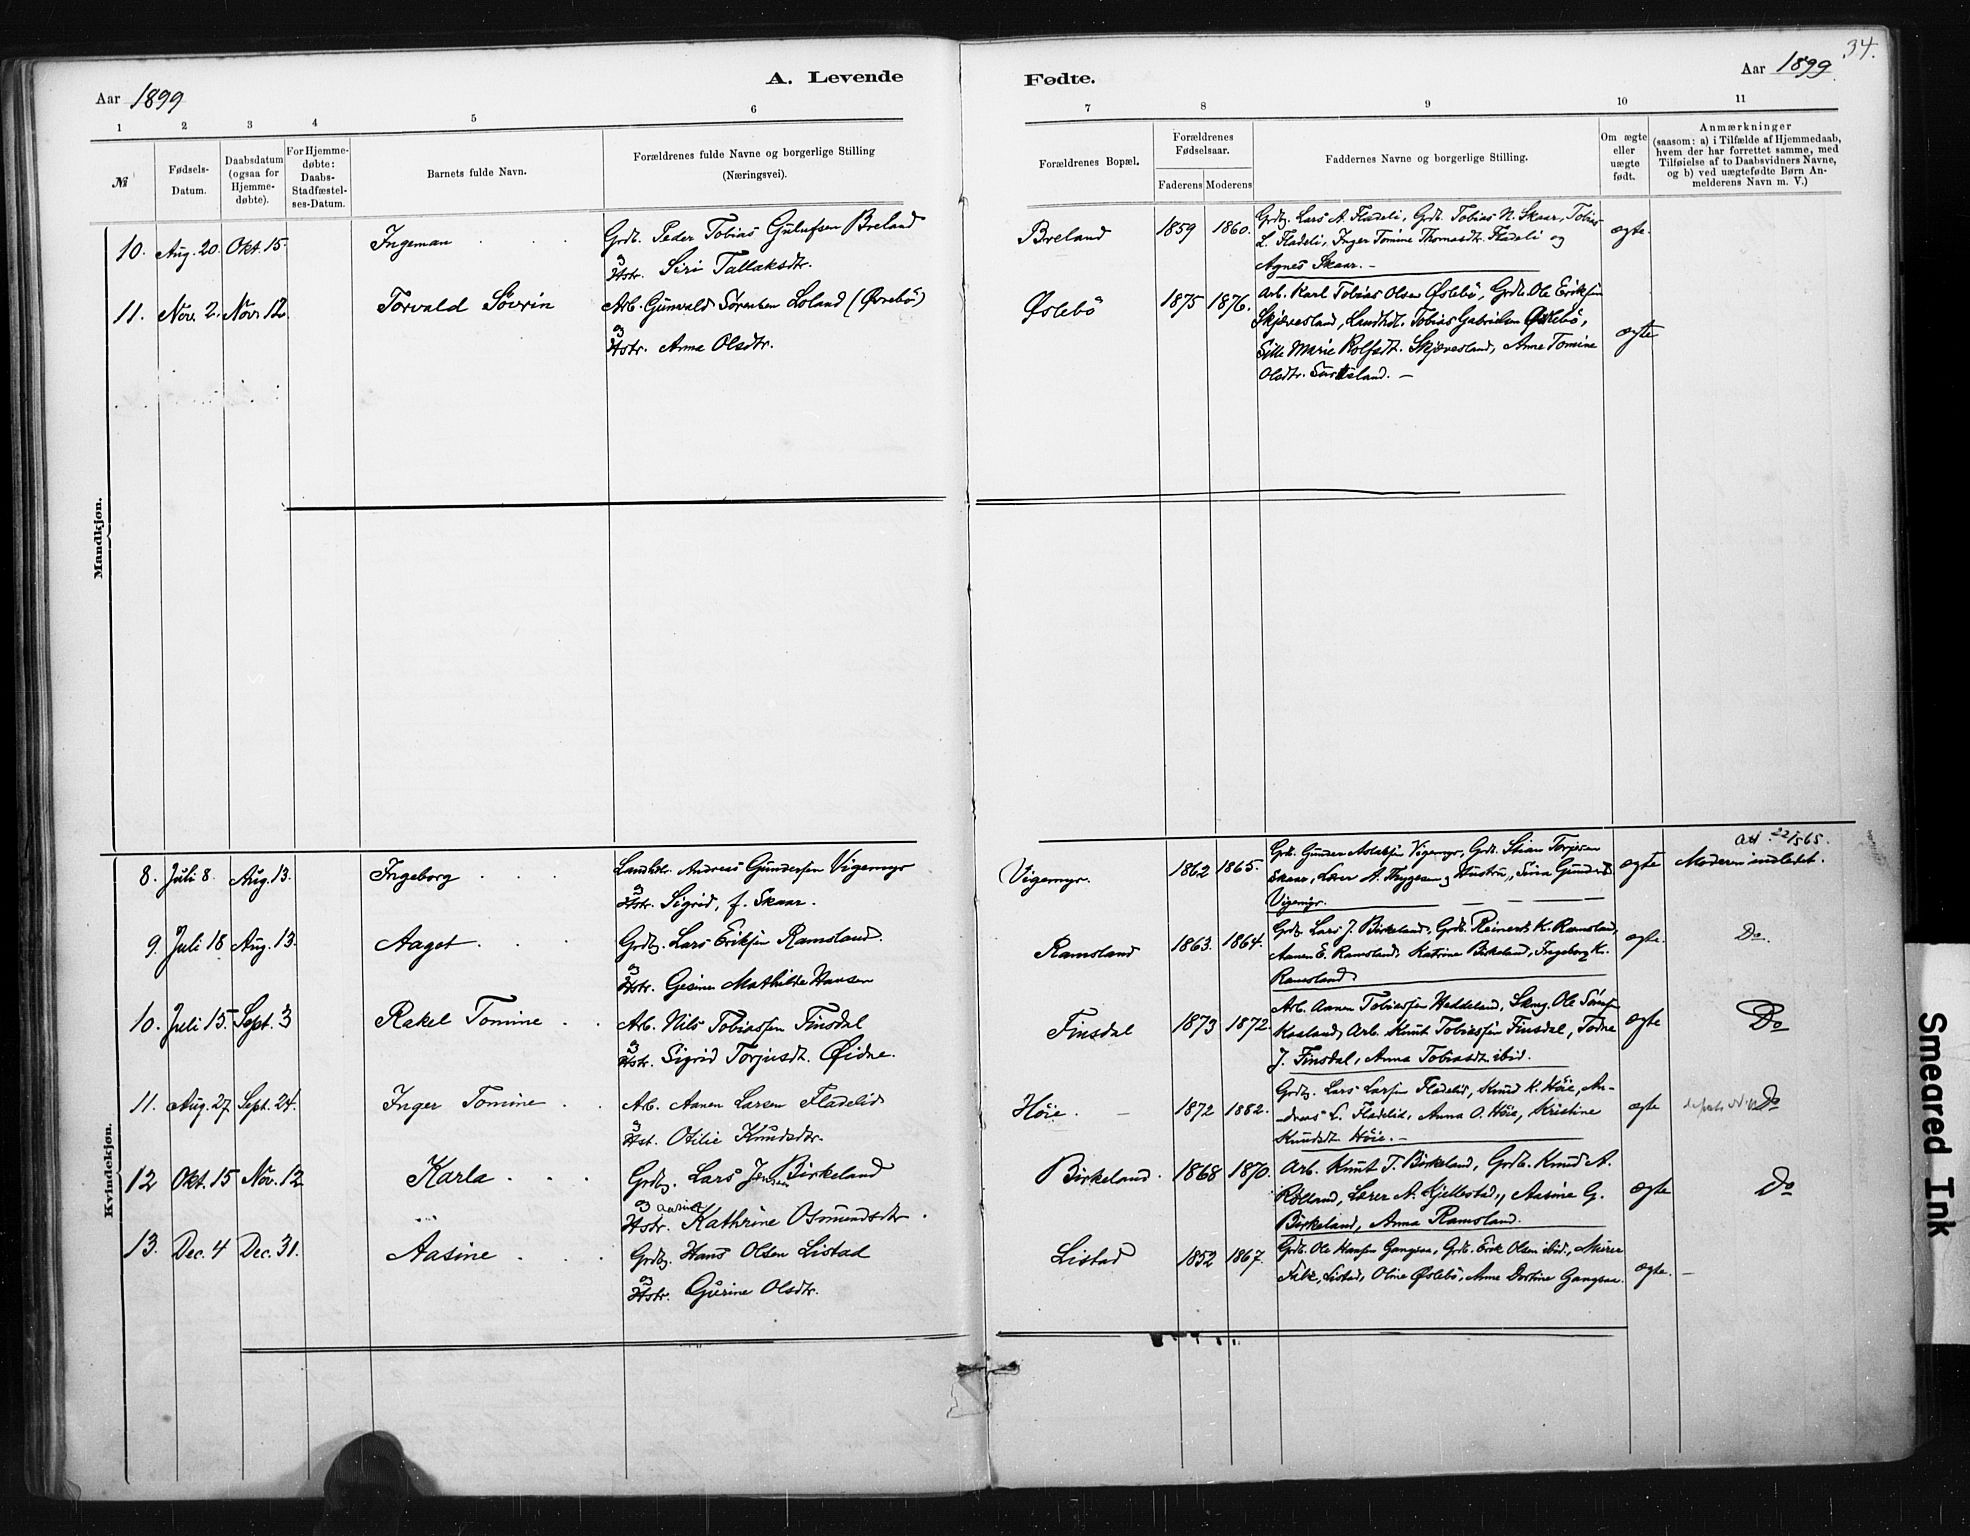 34.
Aar 1899
A. Levende
Fødte.
Aar 1899.
1 2 3 4 5 6 7 8 9 10 11
№
Fødsels-
Datum.
Daabsdatum
(ogsaa for
Hjemme-
døbte).
For Hjemme-
døbte:
Daabs-
Stadfæstel-
ses-Datum.
Barnets fulde Navn.
Forældrenes fulde Navne og borgerlige Stilling
(Næringsvei).
Forældrenes Bopæl.
Forældrenes
Fødselsaar.
Faderens Moderens
Faddernes Navne og borgerlige Stilling.
Om ægte
eller
uægte
født.
Anmærkninger
(saasom: a) i Tilfælde af Hjemmedaab,
hvem der har forrettet samme, med
Tilføielse af to Daabsvidners Navne,
og b) ved uægtefødte Børn An-
melderens Navn m. V.)
Mandkjøn.
10. Aug. 20. Okt. 15. Ingeman
Grdb. Peder Tobias Gulufsen Breland
og
Hstr. Siri Tallaksdtr.
Breland 1859 1860.
Grdbg. Lars A. Fladeli, Grdb. Tobias N. Skaar, Tobias
L. Fladeli, Inger Tomine Thomasdtr. Fladeli og
Agnes Skaar. –
ægte.
11. Nov. 2. Nov. 12. Torvald Søvrin
Arb. Gunvald Sørensen Loland (Øvrebö)
og
Hstr. Anna Olsdtr.
Øslebö 1875 1876.
Arb. Karl Tobias Olsen Øslebö, Grdb. Ole Eriksen
Skjævesland, Landhdl. Tobias Gabrielsen Øslebö,
Sille Marie Rolfsdt. Skjævesland, Anne Tomine
Olsdtr. –
ægte
Kvindekjøn.
8. Juli 8. Aug. 13. Ingeborg
Landhdlr. Andreas Gundersen Vigemyr
Hstr. Sigrid, f. Skaar.
Vigemyr. 1862 1865.
Grdb. Gunder Aslaksen Vigemyr, Grdb. Stian Torjusen
Skaar, Lærer A. Thygesen og Hustru, Sina Gundersd.
Vigemyr.
ægte
Att. 22/5 65.
Moderen indledet.
9. Juli 18. Aug. 13. Aaget
Grdbg. Lars Eriksen Ramsland.
og
Hstr. Gesine Mathilde Hansen
Ramsland 1863. 1864.
Grdbg. Lars J. Birkeland, Grdb. Reinert K. Ramsland,
Aanen E. Ramsland, Katrine Birkeland, Ingeborg K.
Ramsland
ægte. Do.
10. Juli 15. Sept. 3 Rakel Tomine
Arb. Nils Tobiassen Finsdal
og
Hstr. Sigrid Torjusdt. Øidne.
Finsdal 1873 1872.
Arb. Aanen Tobiassen Heddeland, Skmg. Ole Sörensen
Kaaland, Arb. Knut Tobiassen Finsdal, Todne
J. Finsdal, Anna Tobiasdt. ibid.
ægte Do
11. Aug. 27. Sept. 24. Inger Tomine
Arb. Aanen Larsen Fladelid
og
Hst. Otilie Knudsdtr.
Höie. 1872 1882.
Grdbg. Lars Larsen Fladelid, Knud K. Höie, An-
dreas L. Fladelid, Anna O. Höie, Kristine
Knudsdt. Höie. –
ægte Do
12 Okt. 15 Nov. 12 Karla
Grdbg. Lars Jensen Birkeland
og Aasine
Hstr. Kathrine Osmundsdtr.
Birkeland. 1868 1870.
Arb. Knut T. Birkeland, Grdb. Knud A.
Rölland, Lærer A. Kjellestad, Aasine G.
Birkeland, Anna Ramsland.
ægte Do
13. Dec. 4 Dec. 31. Aasine
Grdbg. Hans Olsen Listad
og
Hstr. Gurine Olsdtr.
Listad 1852 1867.
Grdb. Ole Hansen Gangsaa, Grdb. Erik Olsen ibid.,
Listad, Oline Øslebö, Anne Dortine Gangsaa.
ægte. –
Smeared Ink